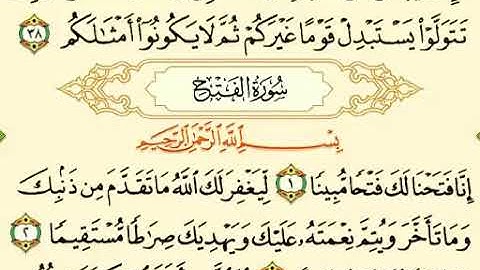 تَتَوَلَّوْا۟ يَسْتَبْدِلْ قَوْمًا غَيْرَكُمْ ثُمَّ لَا يَكُونُوٓا۟ أَمْثَـٰلَكُم ٣٨
سُورَةُ الْفَتْحِ
بِسْمِ ٱللَّهِ ٱلرَّحْمَـٰنِ ٱلرَّحِيمِ
إِنَّا فَتَحْنَا لَكَ فَتْحًا مُّبِينًا ١ لِّيَغْفِرَ لَكَ ٱللَّهُ مَا تَقَدَّمَ مِن ذَنۢبِكَ
وَمَا تَأَخَّرَ وَيُتِمَّ نِعْمَتَهُۥ عَلَيْكَ وَيَهْدِيَكَ صِرَٰطًا مُّسْتَقِيمًا ٢